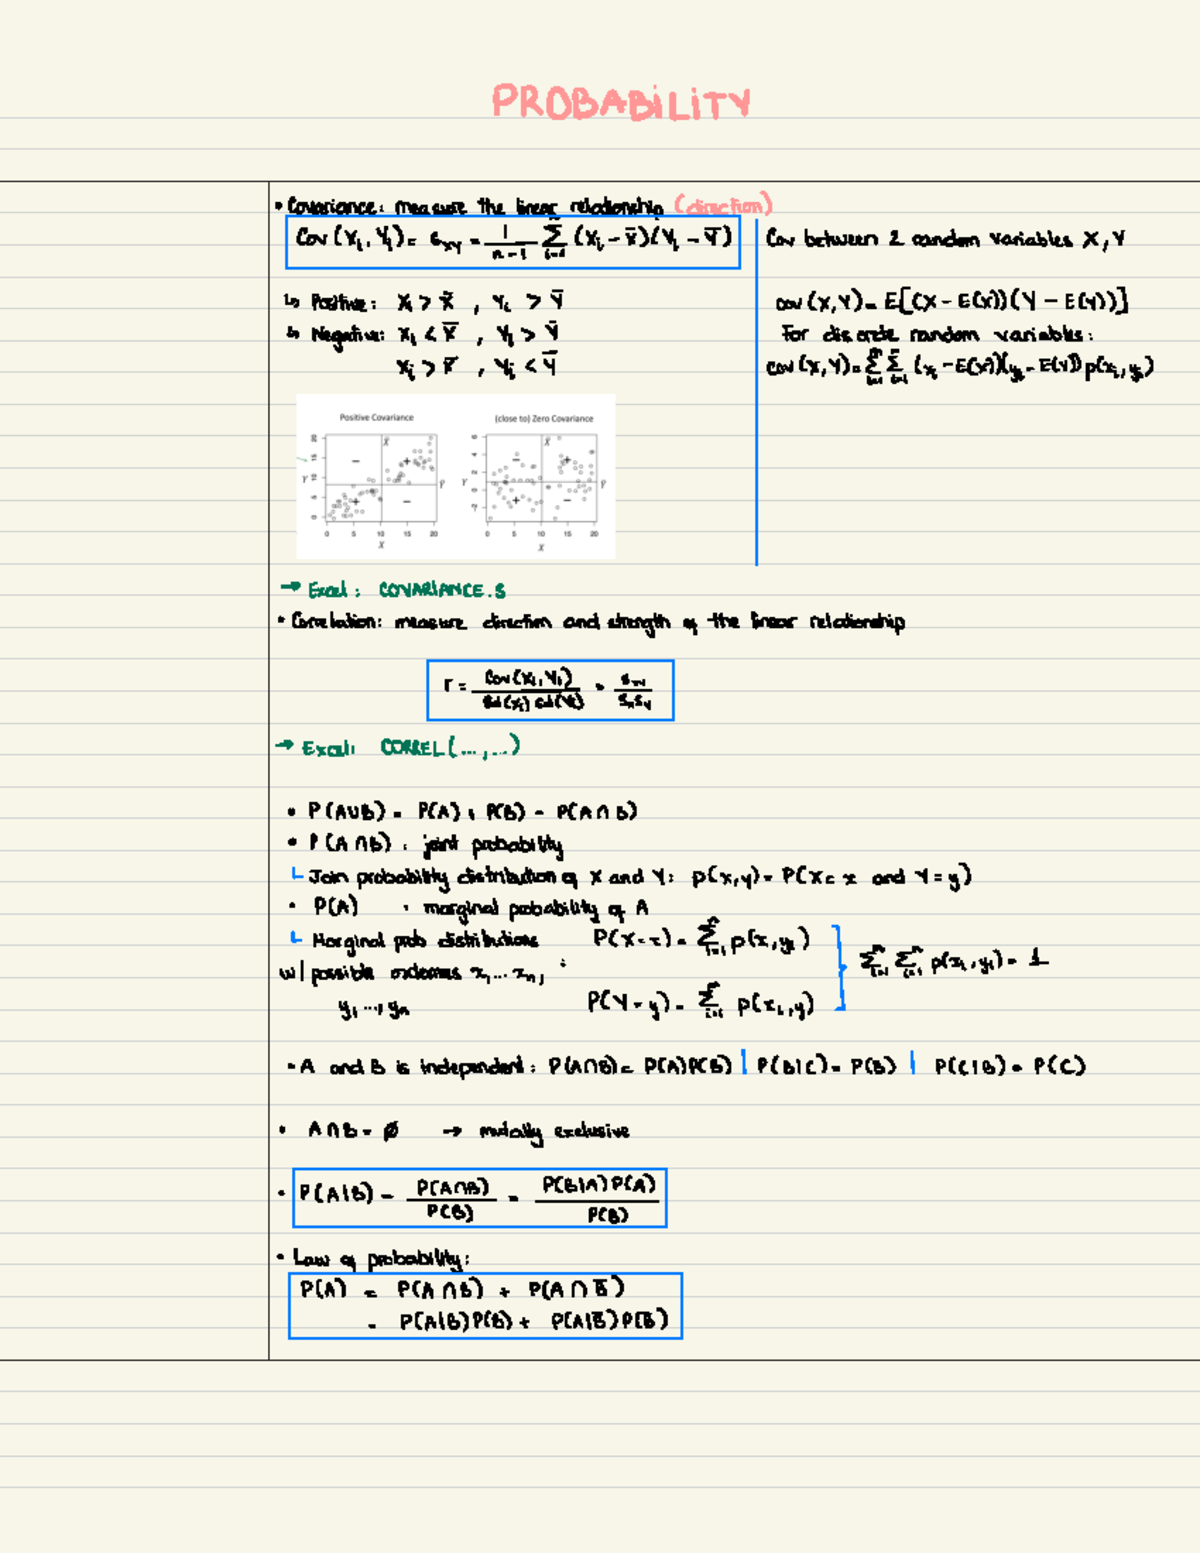 PROBABILITY
• Covariance: measure the linear relationship (direction)
Cov (Xi, Yi) = sxy = 1/(n-1) Σ i=1 n (Xi - X̄)(Yi - Ȳ)
↳ Positive: Xi > X̄ , Yi > Ȳ
↳ Negative: Xi < X̄ , Yi > Ȳ
Xi > X̄ , Yi < Ȳ
Cov between 2 random variables X, Y
cov (X,Y) = E[(X - E(X))(Y - E(Y))]
For discrete random variables:
cov (X,Y) = Σ Σ (xi - E(X))(yi - E(Y)) p(xi, yi)
Positive Covariance
(close to) Zero Covariance
→ Excel: COVARIANCE.S
• Correlation: measure direction and strength of the linear relationship
r = Cov(Xi, Yi) / Sd(Xi) sd(Yi) = sxy / sxsy
→ Excel: CORREL (..., ...)
• P(A∪B) = P(A) + P(B) - P(A∩B)
• P(A∩B) : joint probability
└ Join probability distribution of X and Y: p(x,y) = P(X = x and Y = y)
• P(A) : marginal probability of A
└ Marginal prob distributions P(X = x) = Σ i=1 n p(x, yi)
w/ possible outcomes x1 ... xn, :
y1 ..., yn P(Y = y) = Σ i=1 n p(xi, y)
Σ i=1 n Σ i=1 n p(xi, yi) = 1
• A and B is independent: P(A∩B) = P(A)P(B) | P(B|C) = P(B) | P(C|B) = P(C)
• A∩B = ∅ → mutally exclusive
• P(A|B) = P(A∩B) / P(B) = P(B|A)P(A) / P(B)
• Law of probability:
P(A) = P(A∩B) + P(A∩B̄)
= P(A|B)P(B) + P(A|B̄)P(B̄)